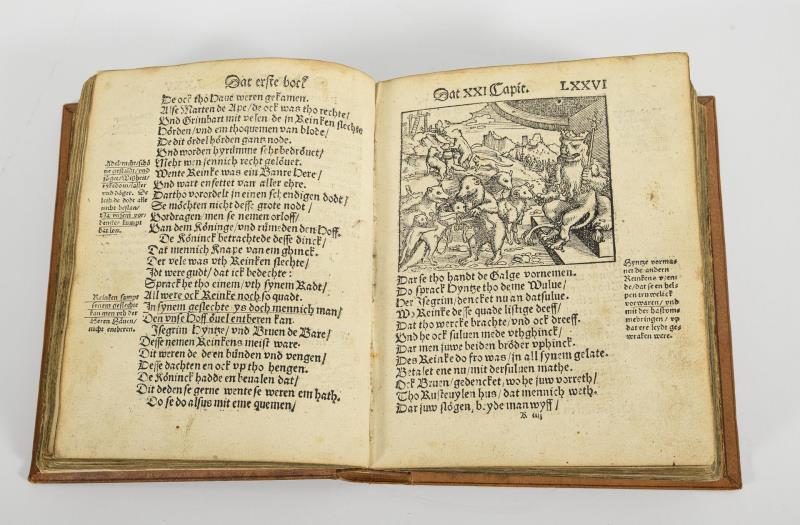 Dat erste boek
De ock tho Haue weren gekamen.
Alse Marten de Ape/de ock was tho rechte/
Vnd Grimbart mit velen de jn Reinken slechte
Hörden/vnd em thoquemen van blode/
De dit ördel hörden gantz node.
Vnd worden hyrümme sehr bedröuet/
Mehr wen jennich recht gelöuet.
Wente Reinke was ein Banre Here/
Vnd wart entsettet van aller ehre.
Dartho vorordelt in einen schendigen dodt/
Se möchten nicht desse grote nodt
Vordragen/men se nemen orloff/
Van dem Köninge/vnd rümeden den Hoff.
De Köninck betrachtede desse dinck/
Dat mennich Knape van em ghinck.
Der vele was vth Reinken slechte/
Idt were gudt/dat ick bedechte:
Sprack he tho einem/vth synem Radt/
All were ock Reinke noch so quadt.
In synem geslechte ys doch mennich man/
Den vnse Hoff öuel entberen kan.
Isegrim Hyntze/vnd Bruen de Bare/
Dessе nemen Reinkens meist ware.
Dit weren de den bünden vnd vengen/
Desse dachten en ock vp tho hengen.
De Köninck hadde en beualen dat/
Dit deden se gerne wente se weren em hath.
Do se do alsus mit eme quemen/
Reinken sampt
synem geslechte
kan men vth der
Heren Häuen/
nicht entberen.
Dat XXI Capit. LXXVI
Dar se tho handt de Galge vornemen.
Do sprack Hyntze tho deme Wulue/
Her Isegrim/dencket nu an datsulue.
Wo Reinke desse quade listige deeff/
Dat tho wercke brachte/vnd ock dreeff.
Vnd he ock suluen mede vthghinck/
Dat men juwe beiden bröder vphinck.
Des Reinke do fro was/in all synem gelate.
Betalet ene nu/mit dersuluen mathe.
Ock Bruen/gedencket/wo he juw vorreth/
Tho Rusteuylen hus/dat mennich weth.
Dar juw slögen/beyde man wyff/
Hyntze vorma-
net de andern
Reinkens vyen-
de/dat se en hel-
pen truwelick
vorwaren/vnd
mit der hast vm-
mebringen/vp
dat ere leyde ge-
wraken were.